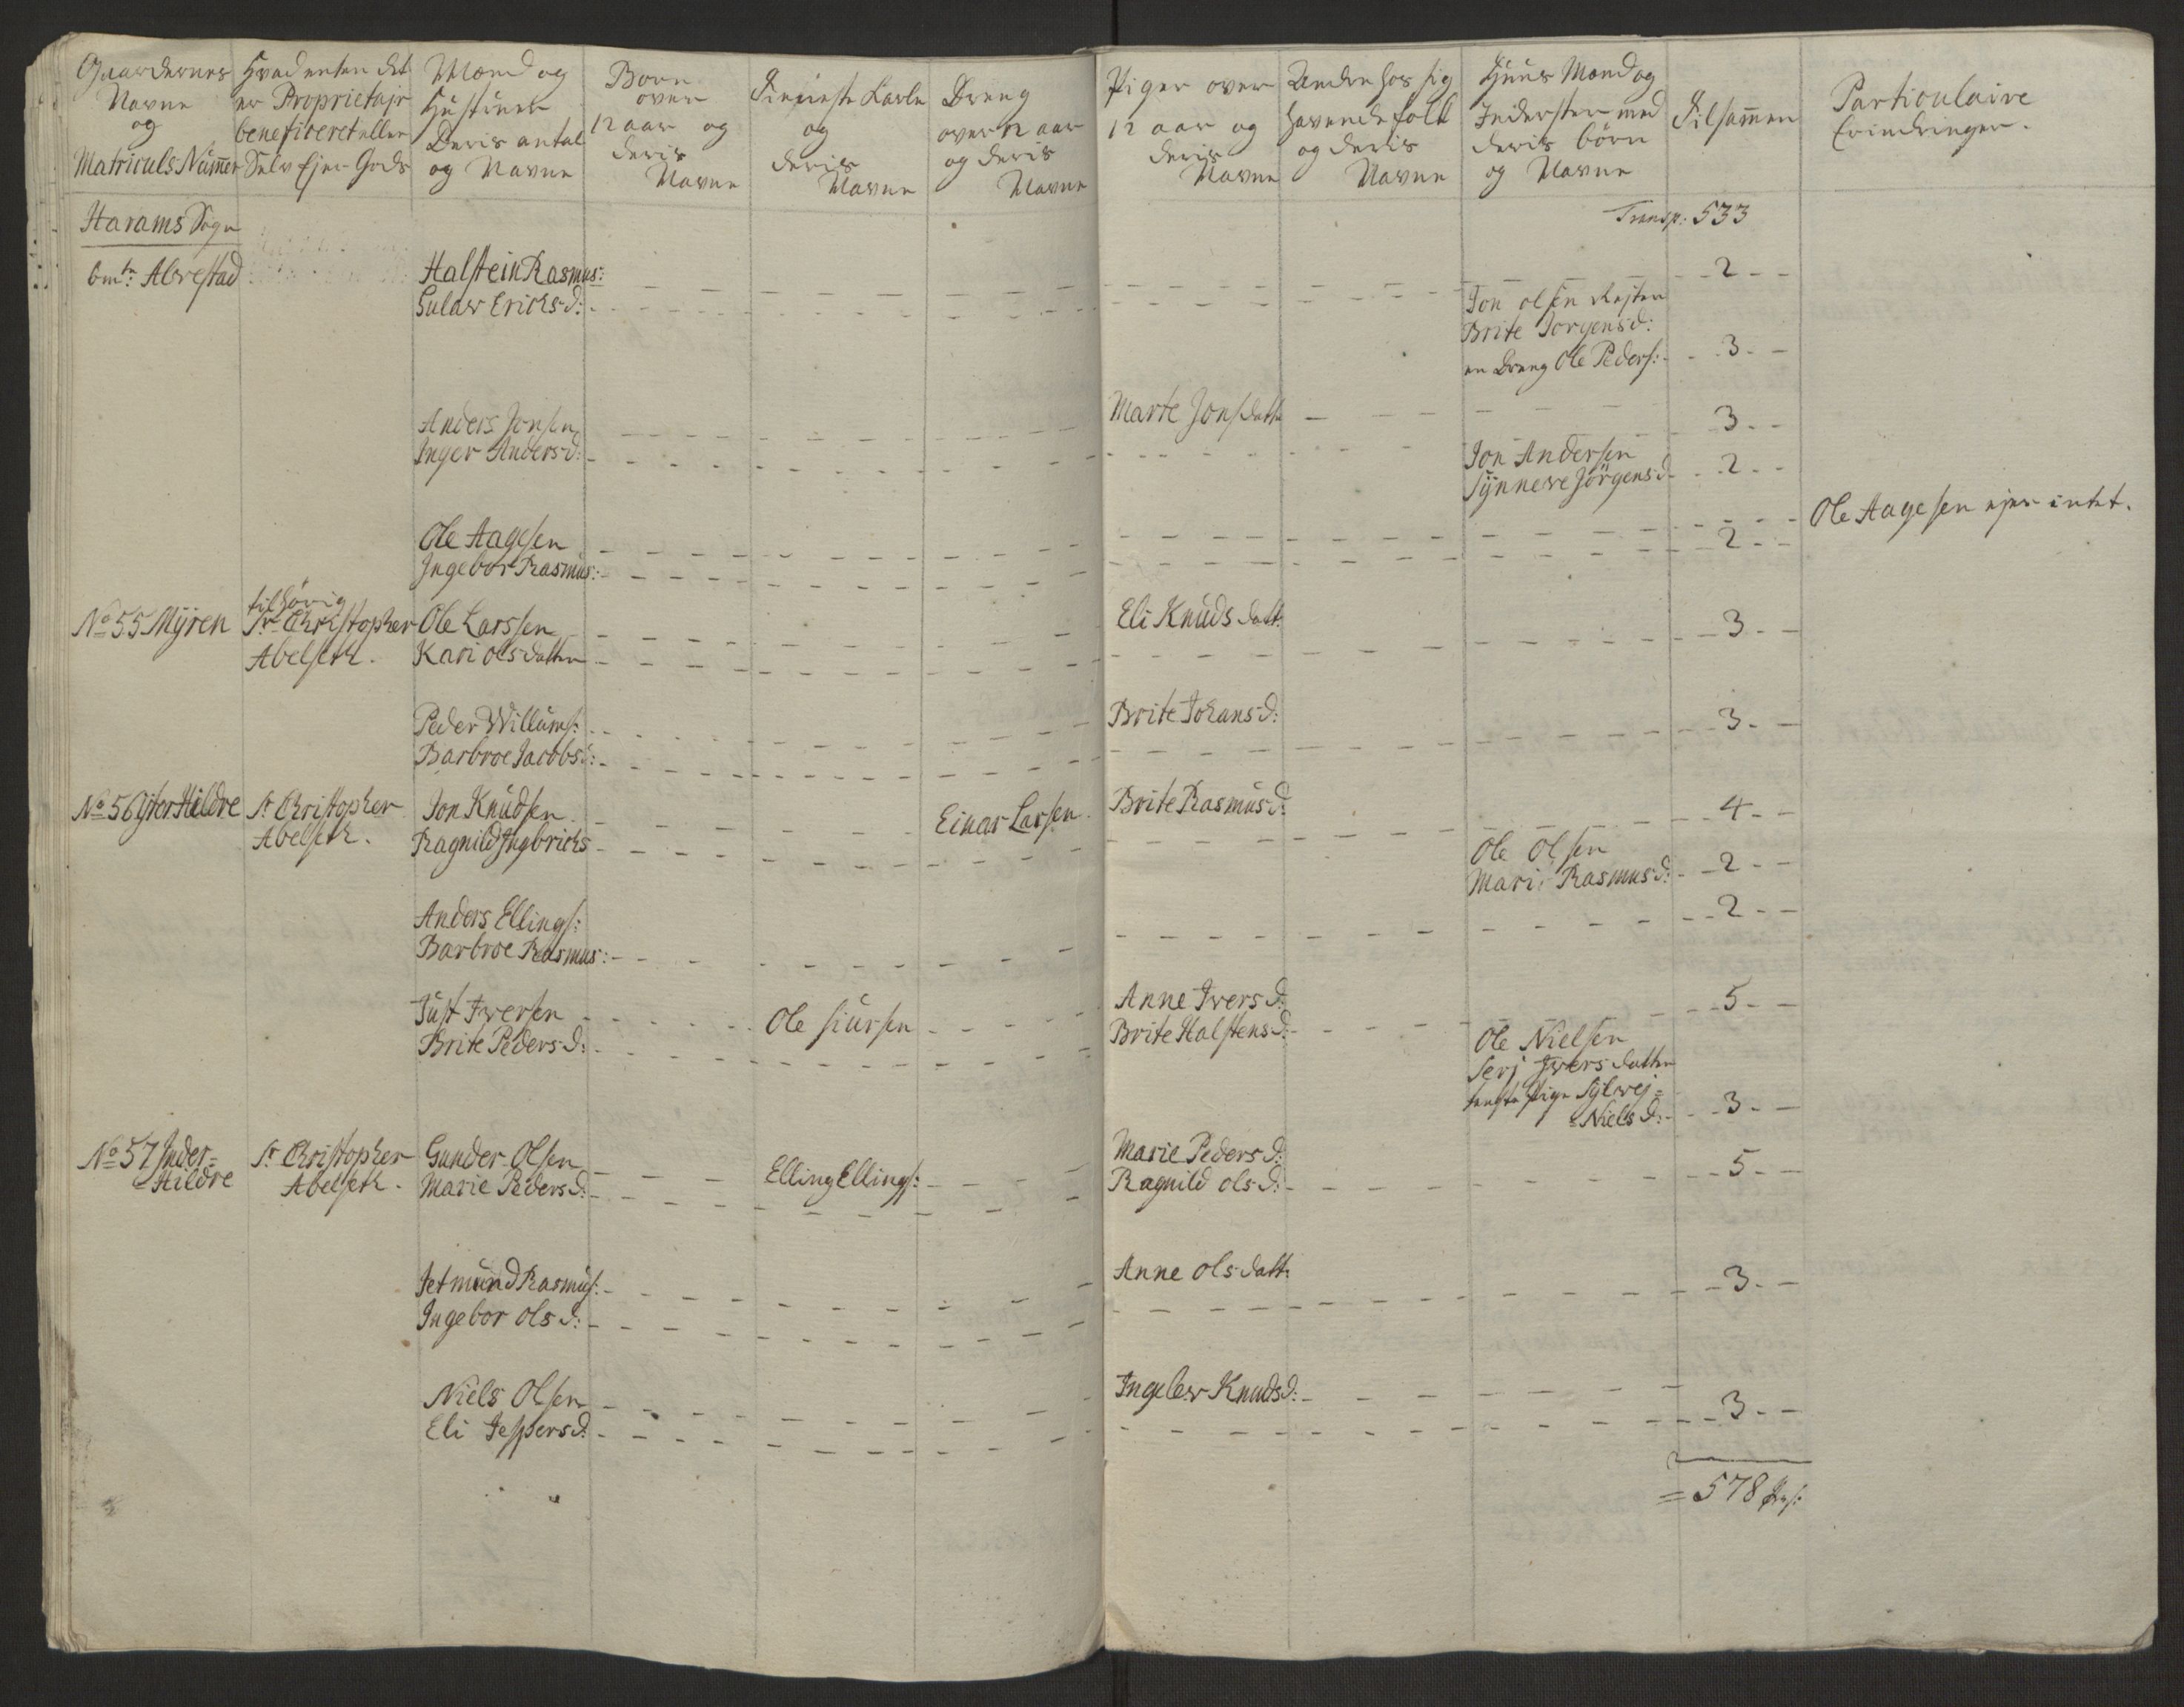 Gaardernes
Navne
og
Matriculs Nummer
Hvad enten det
er Proprietair
beneficeret eller
Selv Ejer Gods
Mænd og
Hustruer
Deris antal
og Navne
Børn
over
12 aar og
deris
Navne
Tieneste Karle
og
deris
Navne
Dreng
over 12 aar
og deris
Navne
Piger over
12 aar og
deris
Navne
Andre hos sig
havende folk
og deris
Navne
Huus Mænd og
Inderster med
deris børn
og Navne
Tilsammen
Particulaire
Erindringer.
Harams Sogn
Transp: 533
Alvestad
Halstein Rasmus:
Ericks d:
2
Jon Olsen
Brite Jorgens d:
en Dreng Ole Peders: 3
Anders Jonsen
Inger Anders d:
Marte Jons datter
3
Jon Andersen
Synneve Jørgens d 2
Ole Aagesen
Ingebor Rasmus:
2
Ole Aagesen ejer intet.
No 55 Myren
tilhørig
Sr Christopher
Abelseth.
Ole Larssen
Kari Olsdatter
Eli Knuds datt:
3
Peder Willums:
Barbroe Jacobs d:
Brite Johans d:
3
No 56 Yter Hildre
Sr Christopher
Abelseth.
Jon Knudsen
Ragnild Ingbricks
Einar Larsen
Brite Rasmus d:
4
Ole Olsen
Mari Rasmus d: 2
Anders Ellings:
Barbroe Rasmus:
2
Just Iversen
Brite Peders d:
Ole Siursen
Anne Ivers d:
Brite Halstens d:
5
Ole Nielsen
Seri Ivers datter
Pige Sylvej=
=Niels d: 3
No 57 Inder=
=Hildre
Sr Christopher
Abelseth.
Gunder Olsen
Marie Peders d:
Elling Ellings:
Marie Peders d:
Ragnild Ols d:
5
Jetmund Rasmus:
Ingebor Ols d:
Anne Ols datt:
3
Niels Olsen
Eli Jespers d:
Ingelev Knuds d:
3
= 578